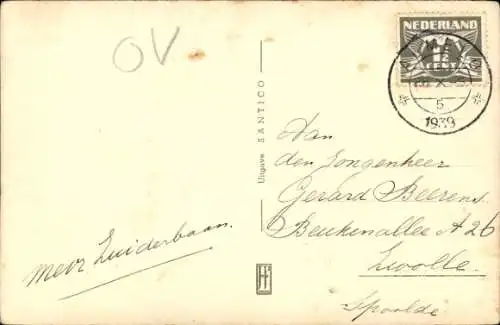 OV
NEDERLAND
CENT
5
1939
Uitgave SANTICO
Aan
den Jongenheer
Gerard Beerens
Beukenallee A 26
Zwolle.
Spoolde
mevr Zuiderbaan.